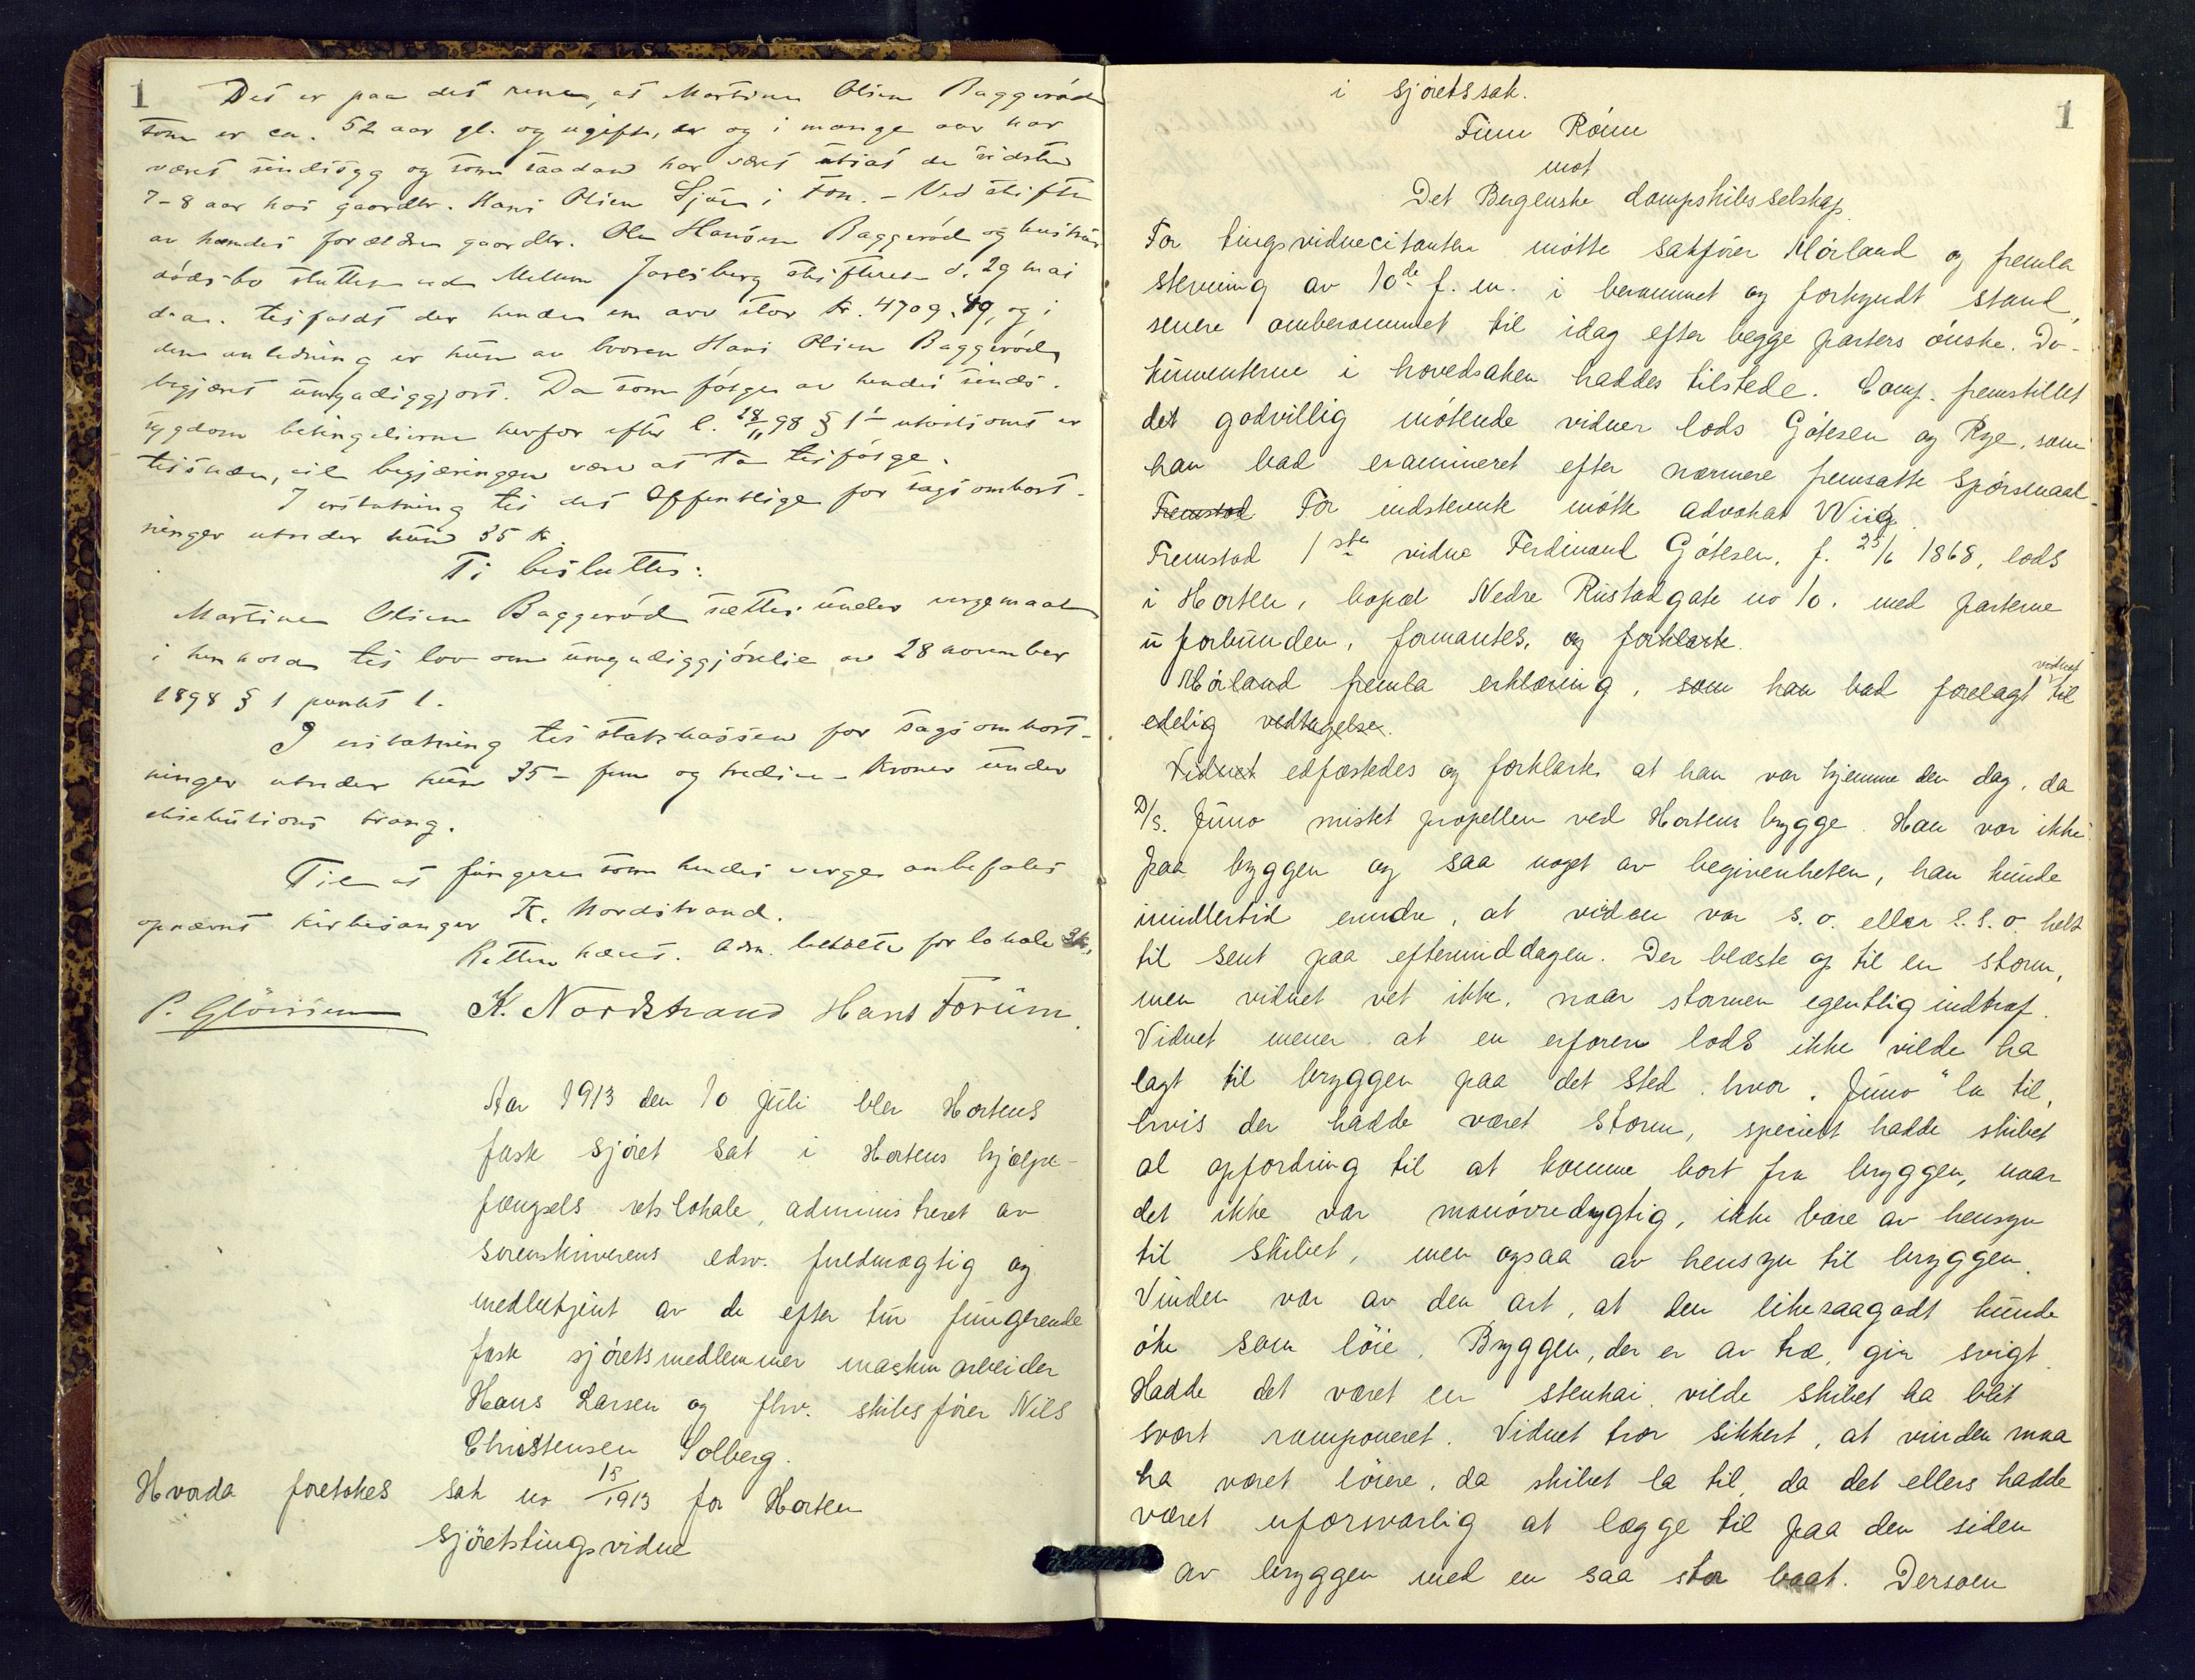 1
Det er paa det rene, at Martine Olsen Baggerød
som er ca. 52 aar gl. og ugift, der og i mange aar har
været sindssyg og som saadan har været utsat de sidste
7-8 aar hos gaardbr. Hans Olsen Sjøen i Fon. - Ved skifte
av hendes forældre gaardbr. Ole Hansen Baggerød og hustrus
dødsbo sluttet ved Mellem Jarlsberg skifteret d. 29 mai
d.aa. tilfaldt der hende en arv stor kr. 4709,49, og i
den anledning er hun av broren Hans Olsen Baggerød
begjært umyndiggjort. Da som følge av hendes sinds-
sygdom betingelserne herfor efter l. 28/11 98 § 1 utvilsomt er
tilstede, vil begjæringen være at ta tilfølge.
I erstatning til det Offentlige for sagsomkost-
ninger utreder hun 35 kr.
Ti besluttes:
Martine Olsen Baggerød sættes under vergemaal
i henhold til lov om umyndiggjørelse av 28 november
1898 § 1 punkt 1.
I erstatning til statskassen for sagsomkost-
ninger utreder hun 35 - fem og tredive - kroner under
eksekutions tvang.
Til at fungere som hendes verge anbefales
opnævnt kirkesanger K. Nordstrand.
Retten hævet. Adm. betalte for lokale 3 kr.
K. Nordstrand Hans Forum.
Aar 1913 den 10 juli blev Hortens
faste sjøret sat i Hortens hjælpe-
fængsels retslokale, administreret av
sorenskriverens edsv. fuldmægtig og
medbetjent av de efter tur fungerende
faste sjøretsmedlemmer maskinarbeider
Hans Larsen og fhv. skibsfører Nils
Christensen Solberg.
Hvorda foretokes sak no 15/1913 for Horten
sjøretstingsvidne
1
i sjøretssak.
Finn Rønn
mot
Det Bergenske dampskibsselskap.
For tingsvidnecitanten møtte sakfører Mørland og fremla
stevning av 10de f. m. i berammet og forkyndt stand,
senere omberammet til idag efter begge parters ønske. Do-
kumenterne i hovedsaken haddes tilstede. Comp. fremstillet
det godvillig møtende vidner lods Gøtesen og Rye, som
han bad examineret efter nærmere fremsatte spørsmaal.
Fremstod For indstevnte møtte advokat Wiig.
Fremstod 1ste vidne Ferdinand Gøtesen, f. 25/6 1868, lods
i Horten, bopæl Nedre Rustadgate no 10, med parterne
uforbunden, formantes, og forklarte.
Mørland fremla erklæring, som han bad forelagt vidnet til
edelig vedtagelse.
Vidnet edfæstedes og forklarte at han var hjemme den dag, da
D/S. Juno mistet propellen ved Hortens brygge. Han var ikke
paa bryggen og saa noget av begivenheten, han kunde
imidlertid erindre, at vinden var s.o. eller s.s.o. helt
til sent paa eftermiddagen. Der blæste op til en storm,
men vidnet vet ikke, naar stormen egentlig indtraf.
Vidnet mener at en erfaren lods ikke vilde ha
lagt til bryggen paa det sted, hvor "Juno" la til,
hvis der hadde været storm, specielt hadde skibet
al opfordring til at komme bort fra bryggen, naar
det ikke var manøvredygtig, ikke bare av hensyn
til skibet, men ogsaa av hensyn til bryggen.
Vinden var av den art, at den likesaagodt kunde
øke som løie. Bryggen, der er av træ, gir svigt.
Hadde det været en stenkai, vilde skibet ha blit
svært ramponeret. Vidnet tror sikkert, at vinden maa
ha været løiere, da skibet la til, da det ellers hadde
været uforsvarlig at lægge til paa den siden
av bryggen med en saa stor baat. Dersom